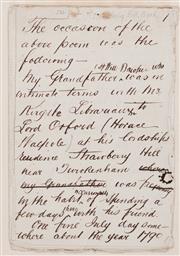 1
The occasion of the
above poem was the
following—
My Grandfather (Mr Will Barker who was on
intimate terms with Mr
Kirgate Librarian to
Lord Orford (Horace
Walpole at his lordships
residence Strawberry Hill
near Twickenham
my Grandfather was
in the habit of occasionally spending a
few days with his friend.
One fine July day some
where about the year 1790